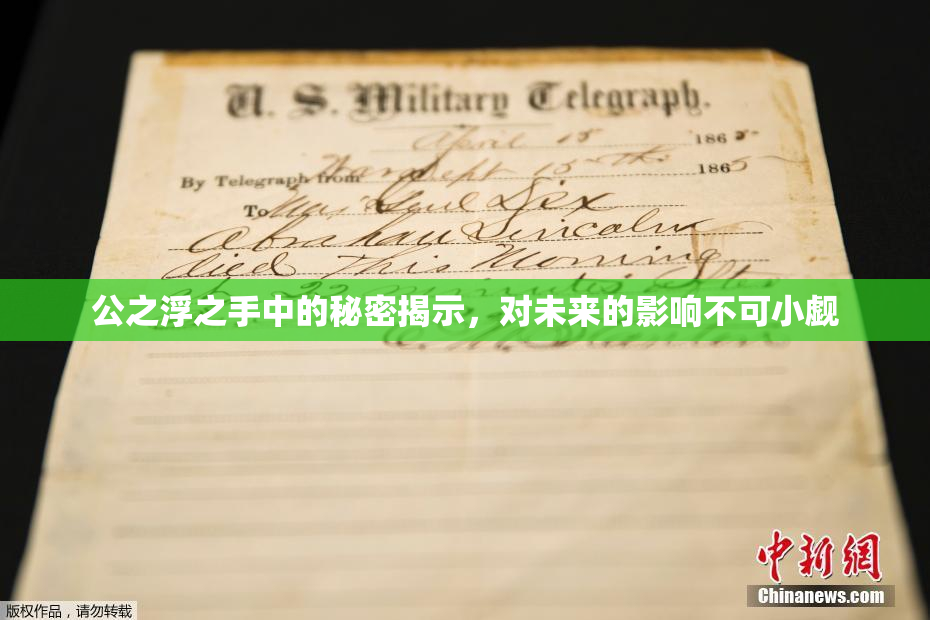 U. S. Military Telegraph.
April 15 1865
By Telegraph from War Dept 15th 1865
To Maj Genl Dix
Abraham Lincoln
died This Morning
at 22 minutes after
公之浮之手中的秘密揭示，对未来的影响不可小觑
E. M. Stanton
中新网
Chinanews.com
版权作品，请勿转载